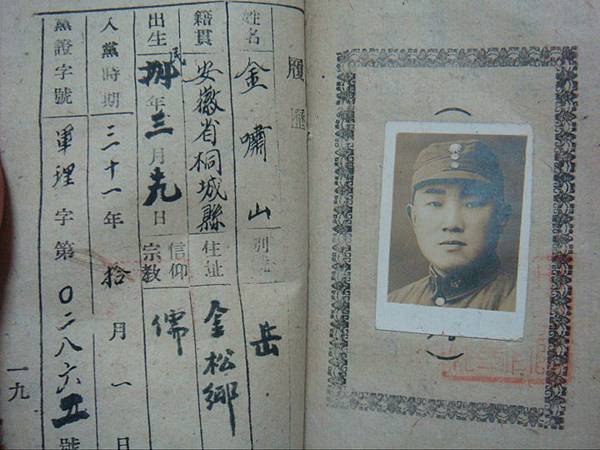 履歷
姓名 金嘯山 別號 岳
籍貫 安徽省桐城縣 住址 金松鄉
出生 民捌年三月十九日 信仰宗教 儒
入黨時期 三十一年拾月一日
黨證字號 軍理字第〇二八六五號
一九